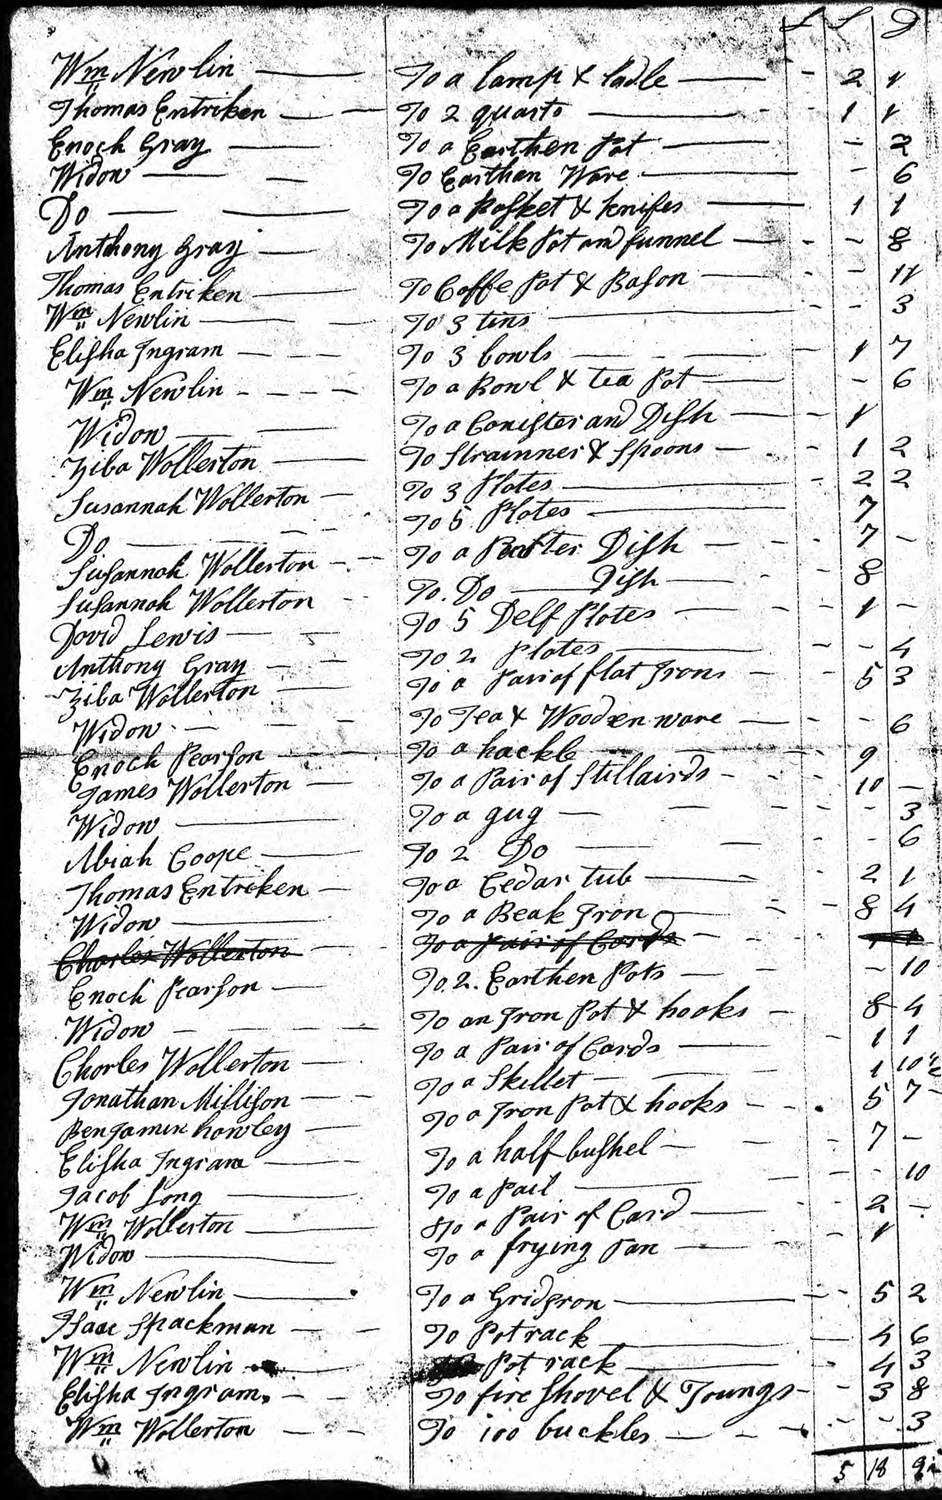 £ S D
Wm Newlin — To a lamp & ladle — 2 1
Thomas Entriken — To 2 quarts — 1 1
Enoch Gray — To a Earthen Pot — - 2
Widow — To Earthan Ware — - 6
Do — To a Basket & knifes — 1 1
Anthony Gray — To Milk Pot and funnel — - 8
Thomas Entriken — To Coffe Pot & Bason — - 11
Wm Newlin — To 3 tins — 3
Elisha Ingram — To 3 bowls — 1 7
Wm Newlin — To a Bowl & tea Pot — - 6
Widow — To a Canister and Dish — 1
Ziba Wollerton — To Strainner & Spoons — 1 2
Susannah Wollerton — To 3 Plates — 2 2
Do — To 5 Plates — 7
Susannah Wollerton — To a Peuter Dish — 7 -
Susannah Wollerton — To Do Dish — 8
David Lewis — To 5 Delf Plates — 1 -
Anthony Gray — To 2 Plates — - 4
Ziba Wollerton — To a Pair of flat Irons — 5 3
Widow — To Tea & Wooden ware — - 6
Enoch Pearson — To a hackle — 9
James Wollerton — To a Pair of Stillairds — 10 -
Widow — To a gug — - 3
Abiah Coope — To 2 Do — - 6
Thomas Entreken — To a Cedar tub — 2 1
Widow — To a Beak Iron — 8 4
Charles Wollerton — To a Pair of Cards
Enoch Pearson — To 2 Earthen Pots — - 10
Widow — To an Iron Pot & hooks — 8 4
Charles Wollerton — To a Pair of Cards — 1 1
Jonathan Millison — To a Skillet — 1 10½
Bengamin howley — To a Iron Pot & hooks — 5 7 -
Elisha Ingram — To a half bushel — 7 -
Jacob Long — To a Pail — - 10
Wm Wollerton — To a Pair of Card — 2 -
Widow — To a frying Pan — 1
Wm Newlin — To a Gridiron — 5 2
Isaac Spackman — To Potrack — 4 6
Wm Newlin — Pot rack — 4 3
Elisha Ingram — To fire Shovel & Toungs — 3 8
Wm Wollerton — To 100 buckles — - 3
5 18 9½